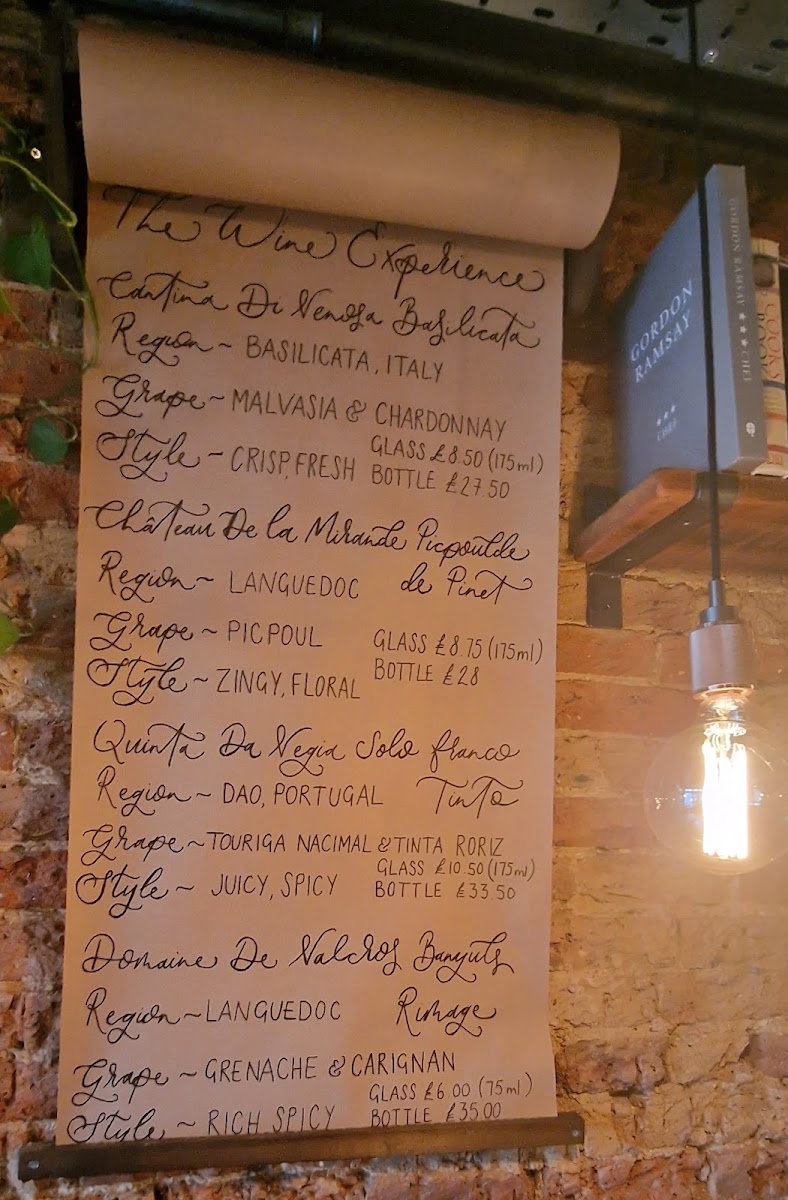 The Wine Experience
Cantina Di Venosa Basilicata
Region ~ BASILICATA, ITALY
Grape ~ MALVASIA & CHARDONNAY
Style ~ CRISP, FRESH
GLASS £8.50 (175ml)
BOTTLE £27.50
Château De la Mirande Picpoulde
de Pinet
Region ~ LANGUEDOC
Grape ~ PICPOUL
Style ~ ZINGY, FLORAL
GLASS £8.75 (175ml)
BOTTLE £28
Quinta Da Negia Solo franco
Tinto
Region ~ DAO, PORTUGAL
Grape ~ TOURIGA NACIMAL & TINTA RORIZ
Style ~ JUICY, SPICY
GLASS £10.50 (175ml)
BOTTLE £33.50
Domaine De Valcros Banyuls
Rimage
Region ~ LANGUEDOC
Grape ~ GRENACHE & CARIGNAN
Style ~ RICH SPICY
GLASS £6.00 (75ml)
BOTTLE £35.00
GORDON
RAMSAY
CHEF
GORDON RAMSAY *** CHEF